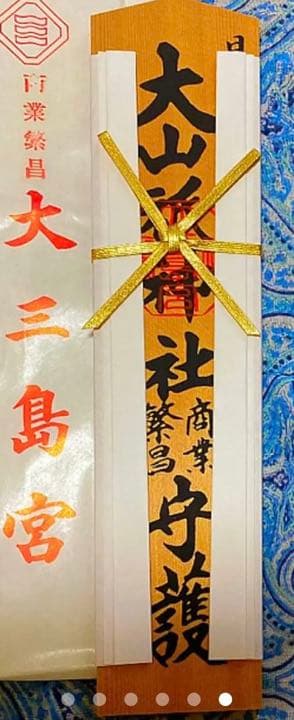 日
大山祇神社
商業
繁昌
守護
商業繁昌
大三島宮